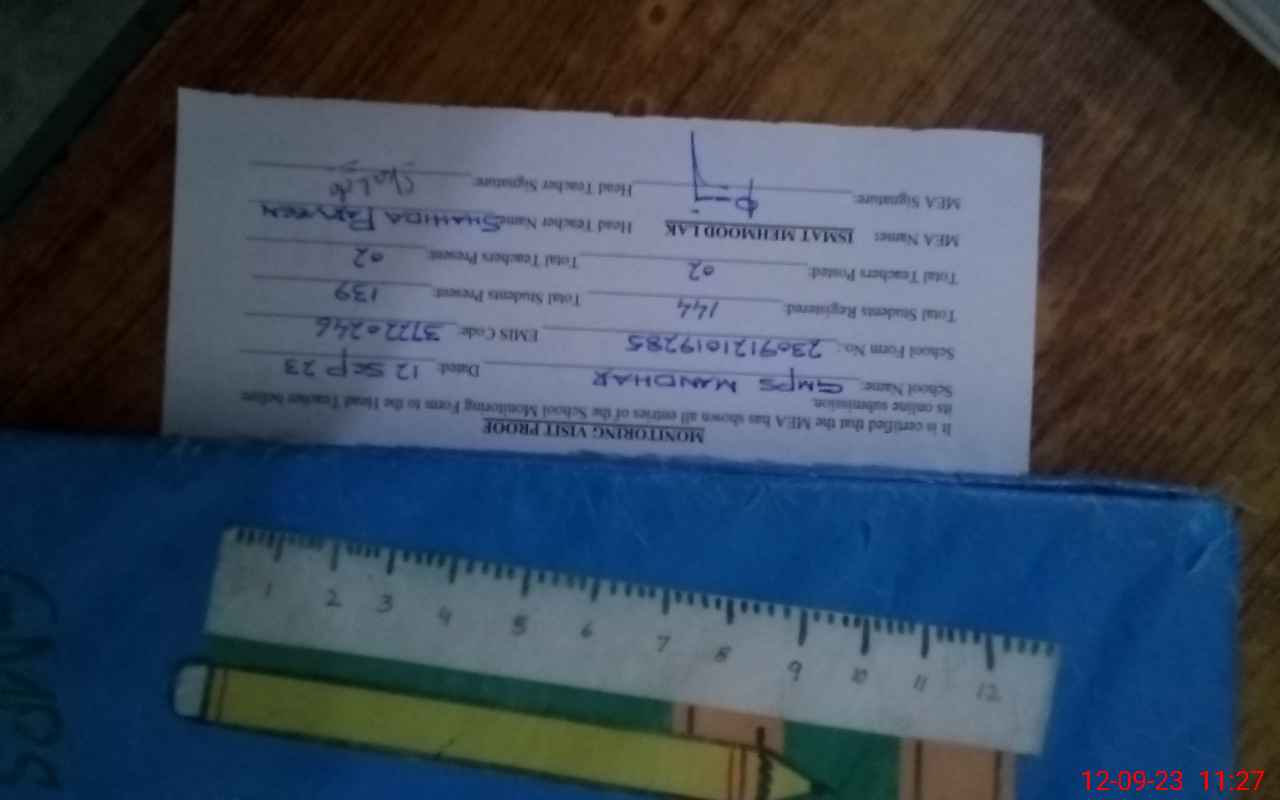 MONITORING VISIT PROOF
It is certified that the MEA has shown all entries of the School Monitoring Form to the Head Teacher before
its online submission.
School Name: GMPS MANDHAR Dated: 12 SEP 23
School Form No.: 2309121019285 EMIS Code: 37220246
Total Students Registered: 144 Total Students Present: 139
Total Teachers Posted: 02 Total Teachers Present: 02
MEA Name: ISMAT MEHMOOD LAK Head Teacher Name: SHAHIDA PARVEEN
MEA Signature: Head Teacher Signature:
1 2 3 4 5 6 7 8 9 10 11 12
GMPS
12-09-23 11:27